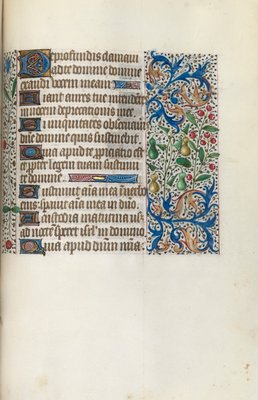 De profundis clamaui
ad te domine domine
exaudi vocem meam
Fiant aures tue intendentes
in vocem deprecationis mee
Si iniquitates obseruaueris
dñe domine quis sustinebit
Quia apud te propiciatio est
et propter legem tuam sustinui
te domine
Sustinuit aĩa mea in verbo
eius sperauit aĩa mea in dño
A custodia matutina usq
ad noctem speret isrl in domino
Quia apud dñm mĩa